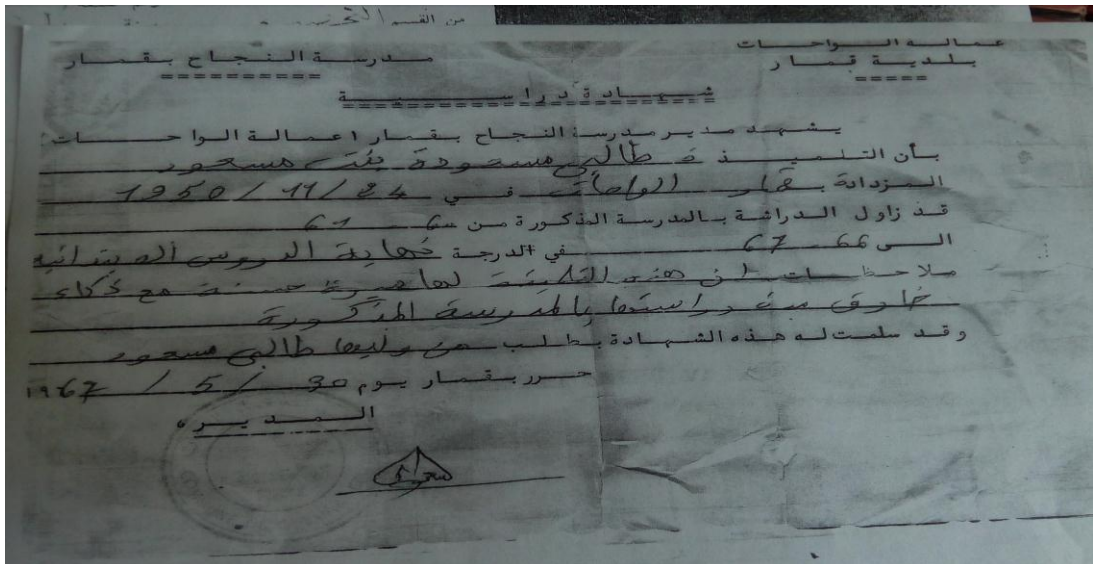 من القسم
عمالة الواحات
بلدية قمار
مدرسة النجاح بقمار
شهادة دراسية
يشهد مدير مدرسة النجاح بقمار اعمالة الواحات
بأن التلميذ ة طالبي مسعودة بنت مسعود
المزدادة بقمار الواحات في 24/11/1950
قد زاول الدراسة بالمدرسة المذكورة من سـ 61
الى 66 67 في الدرجة نهاية الدروس الابتدائية
ملاحظات ان هذه التلميذة لها سيرة حسنة مع ذكاء
خارق مدة دراستها بالمدرسة المذكورة
وقد سلمت له هذه الشهادة بطلب من وليها طالبي مسعود
حرر بقمار يوم 30 / 5 / 1967
المدير